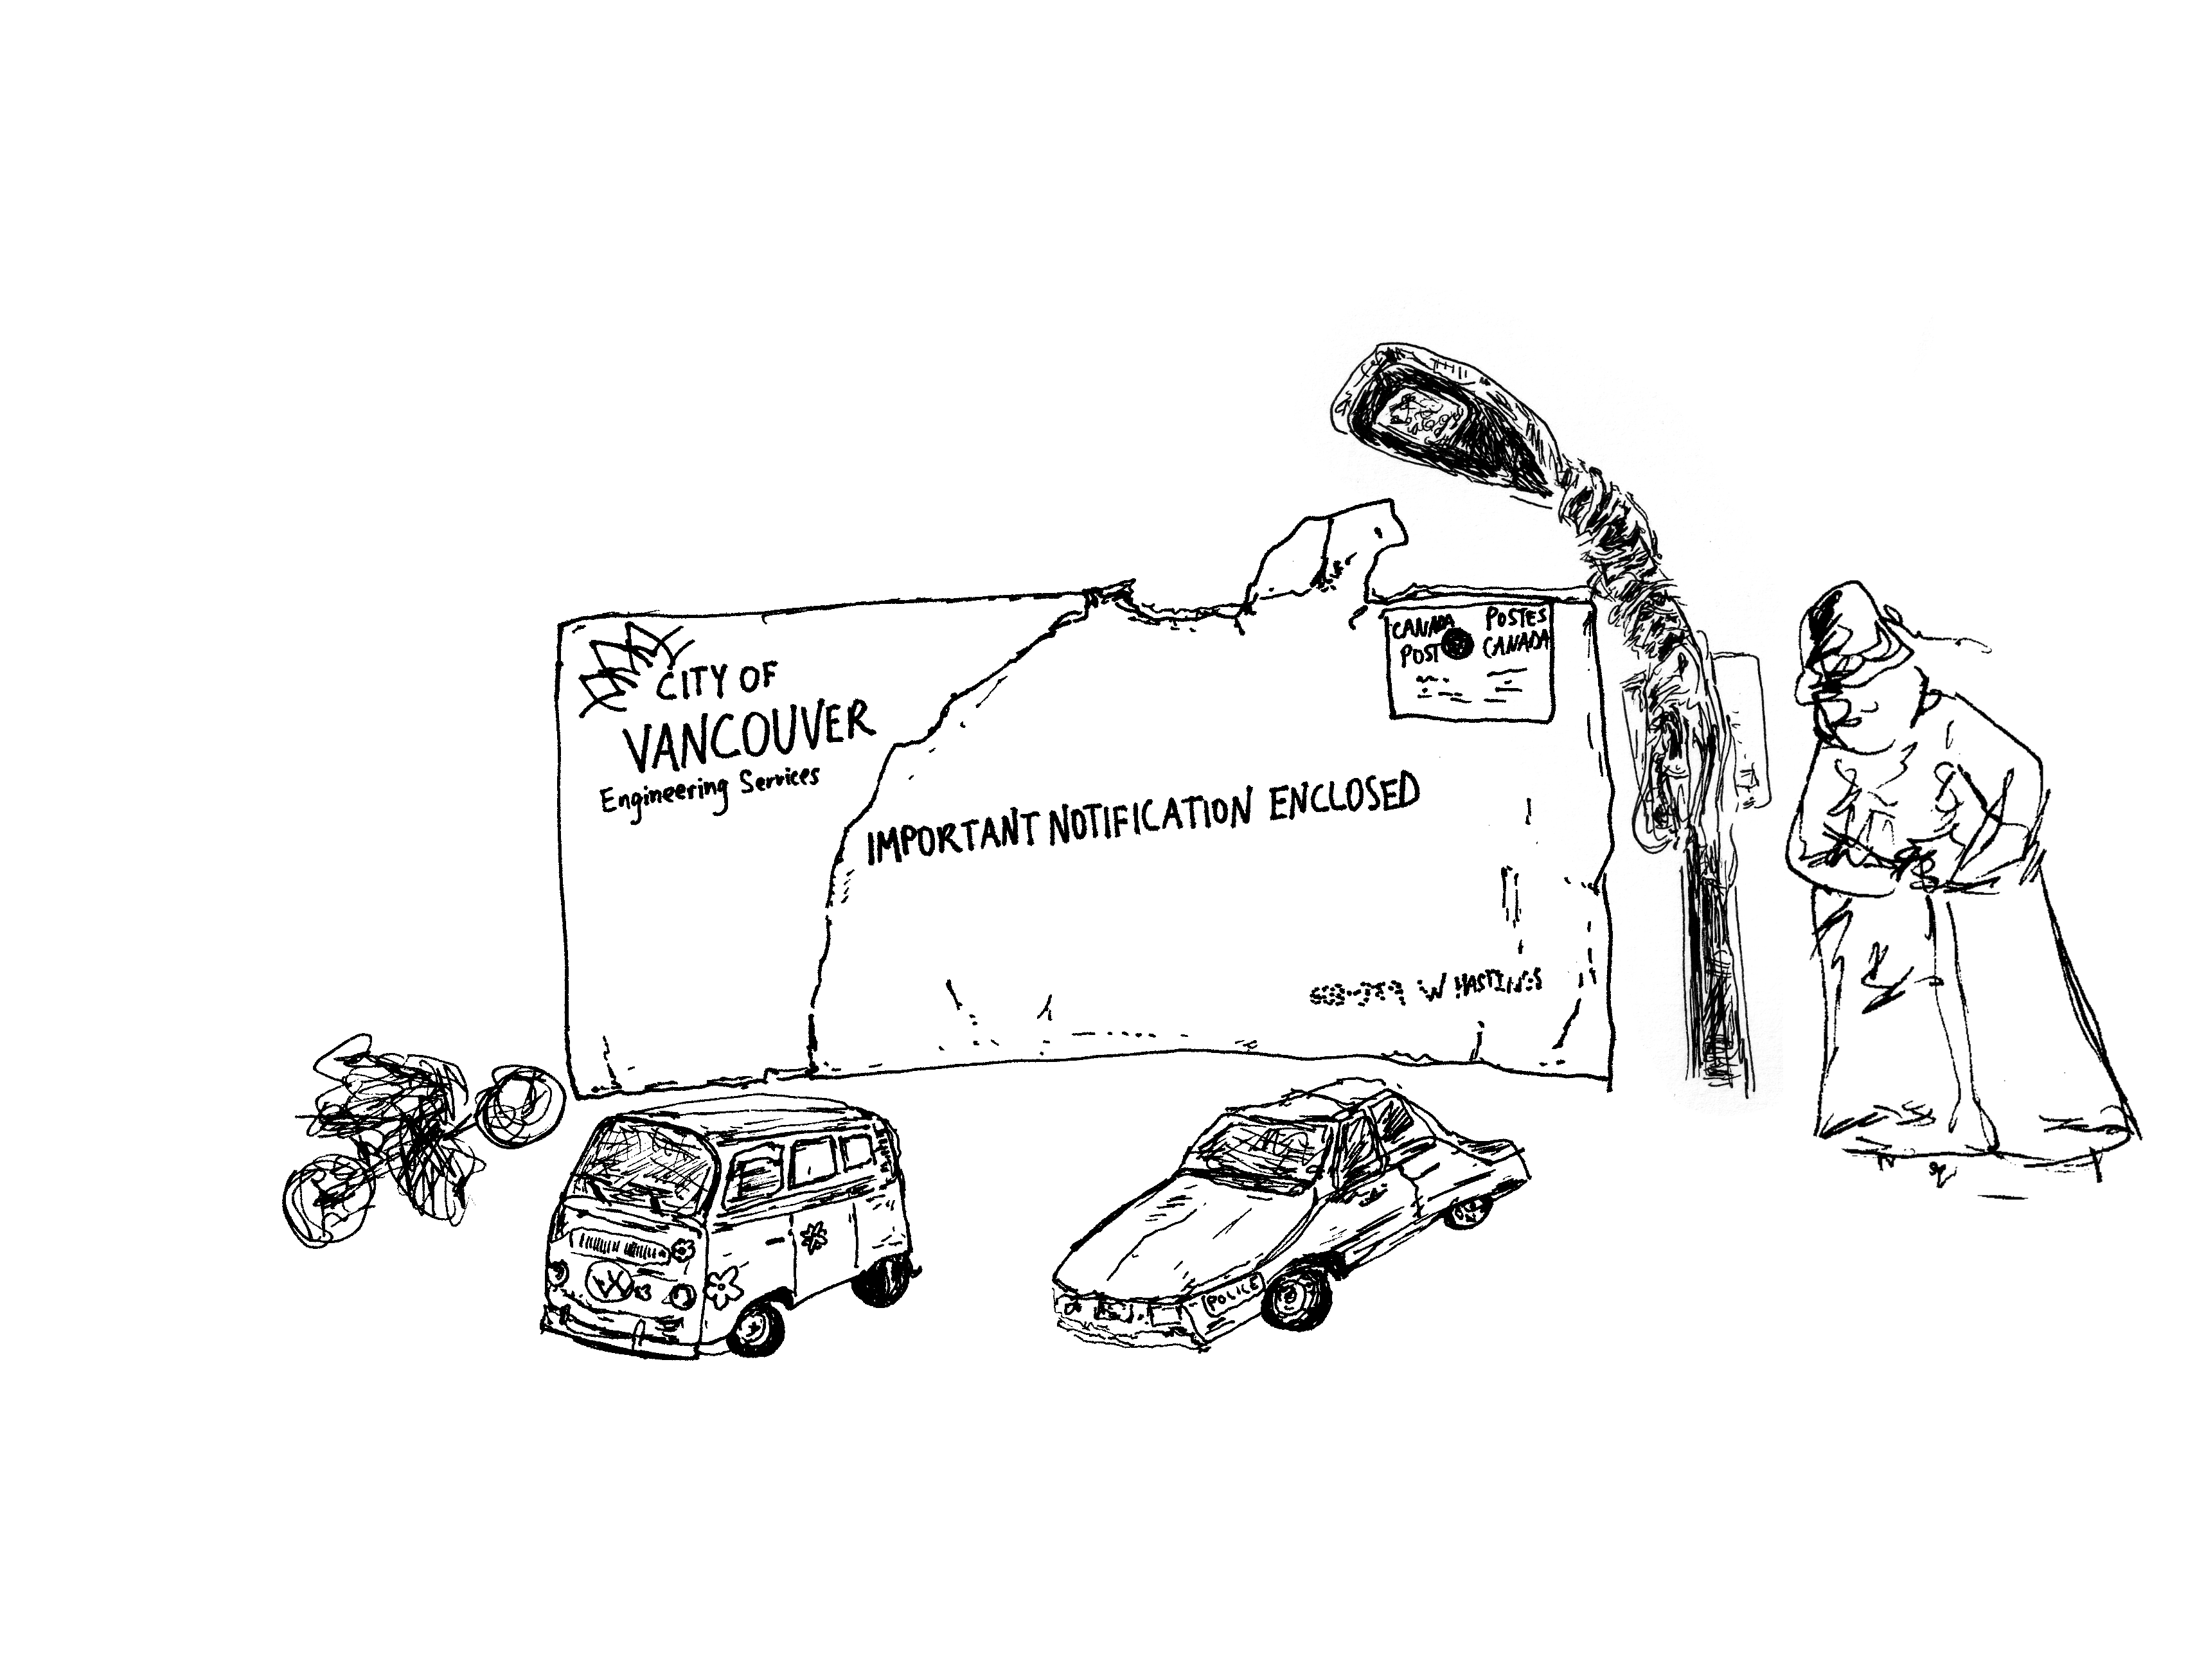 CITY OF
VANCOUVER
Engineering Services
CANADA POST
POSTES CANADA
IMPORTANT NOTIFICATION ENCLOSED
W HASTINGS
POLICE